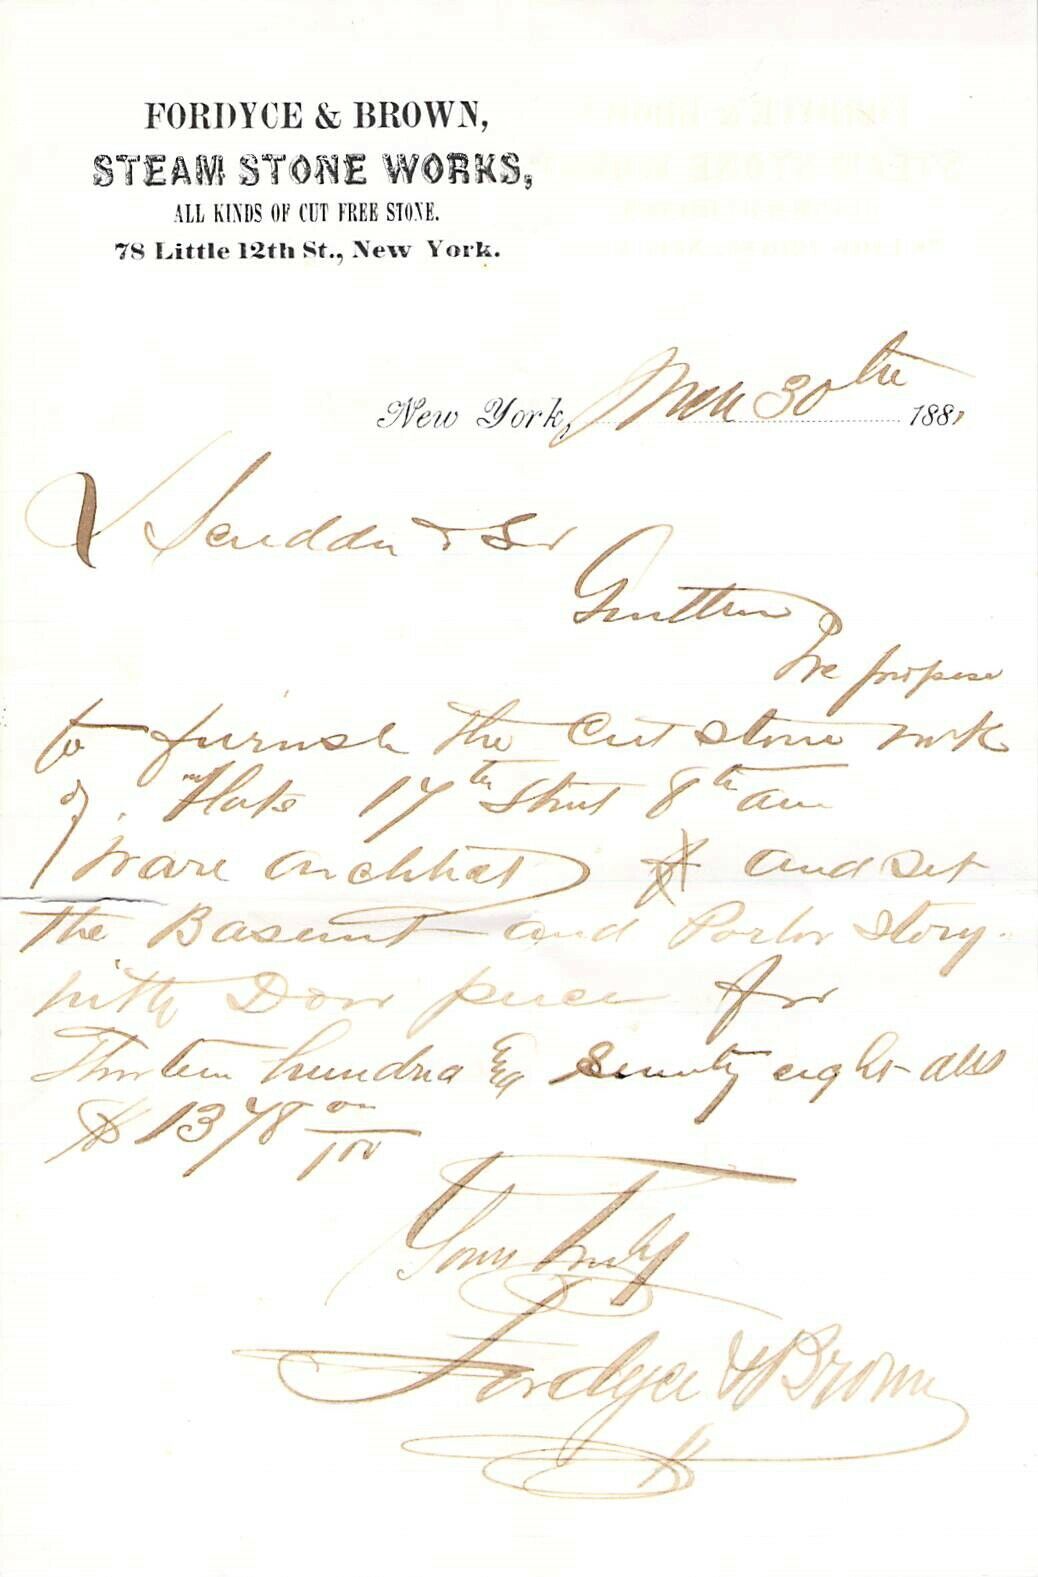 FORDYCE & BROWN,
STEAM STONE WORKS,
ALL KINDS OF CUT FREE STONE.
78 Little 12th St., New York.
New York, Mch 30th 1881
Scudder &
Gentlemen
We propose
to furnish the Cut stone work
of Flats 17th Street 8th av
Ware architect and set
the Basemt and Parlor Story
Door pieces for
Thirteen hundred & Seventy eight dlls
$1378 00/100
Yours Truly
Fordyce & Brown